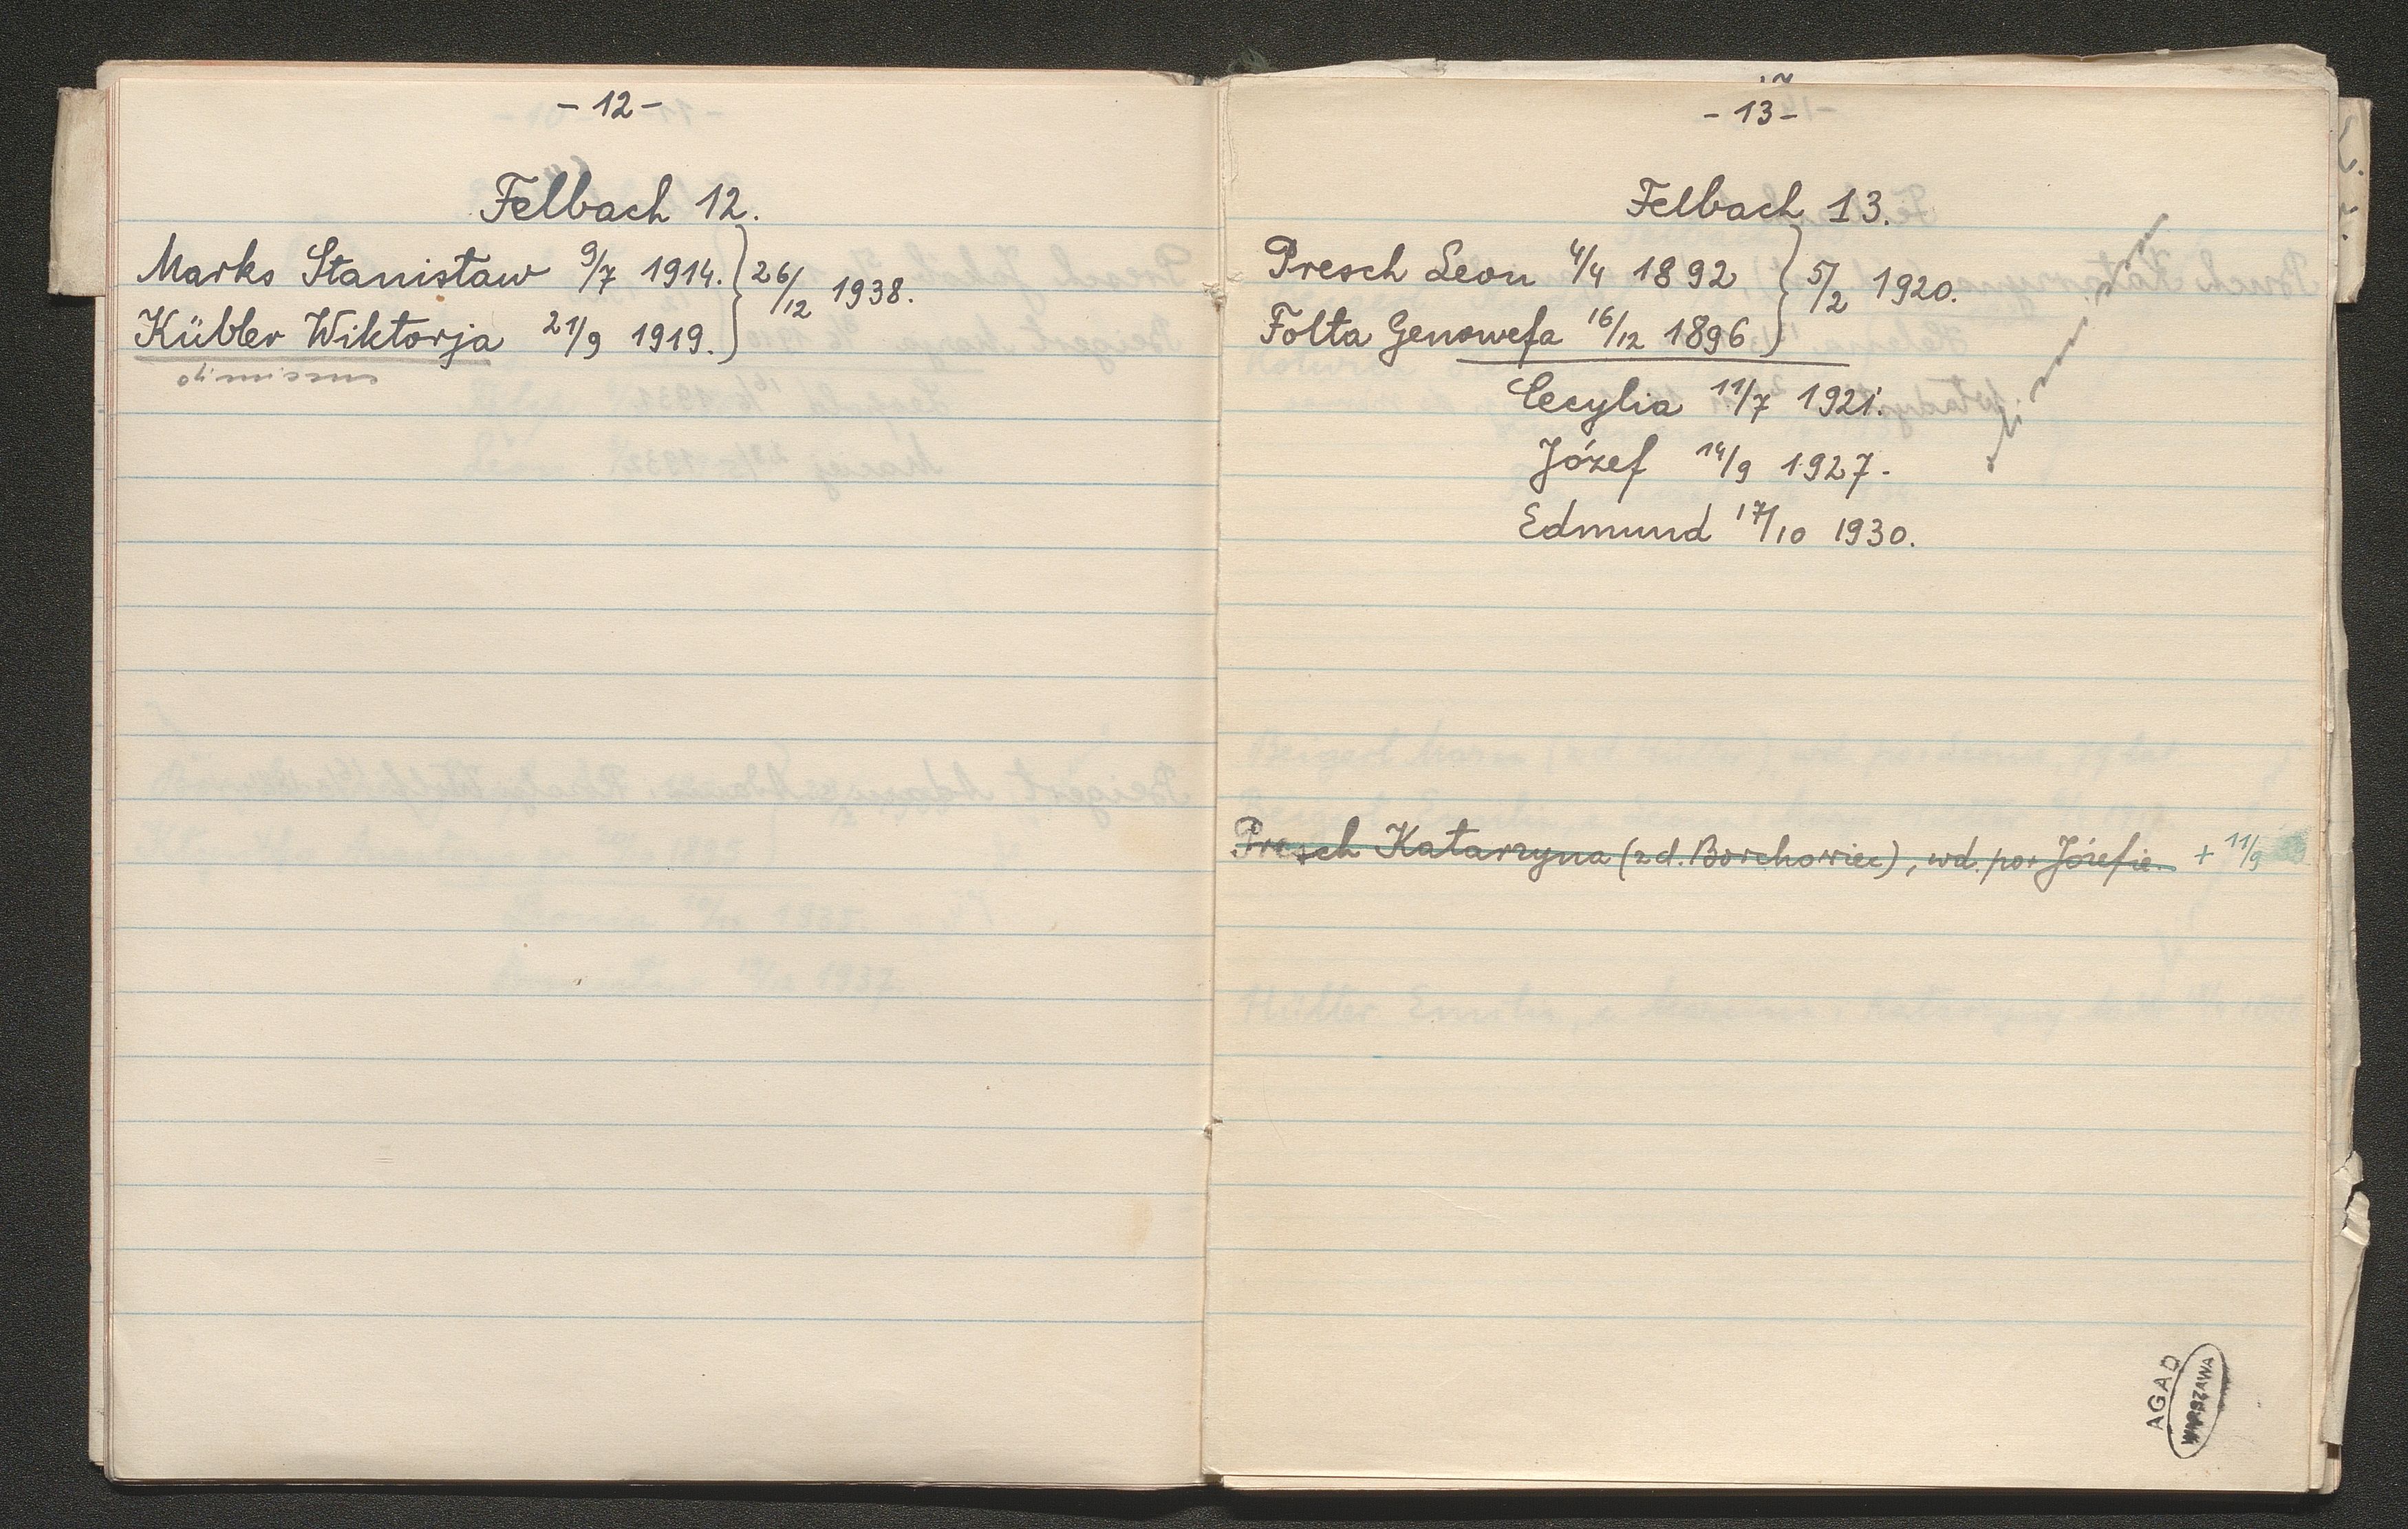 - 12 -
Felbach 12.
Marks Stanisław 9/7 1914. } 26/12 1938.
Kübler Wiktorja 21/9 1919.
- 13 -
Felbach 13.
Presch Leon 4/4 1892 } 5/2 1920.
Folta Genowefa 16/12 1896
Cecylia 11/7 1921.
Józef 14/9 1927.
Edmund 17/10 1930.
Presch Katarzyna (zd. Borchowiec), wd. po Józefie. + 11/9
AGAD
WARSZAWA